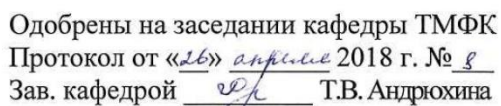 Одобрены на заседании кафедры ТМФК
Протокол от «26» апреля 2018 г. № 8
Зав. кафедрой Т.В. Андрюхина